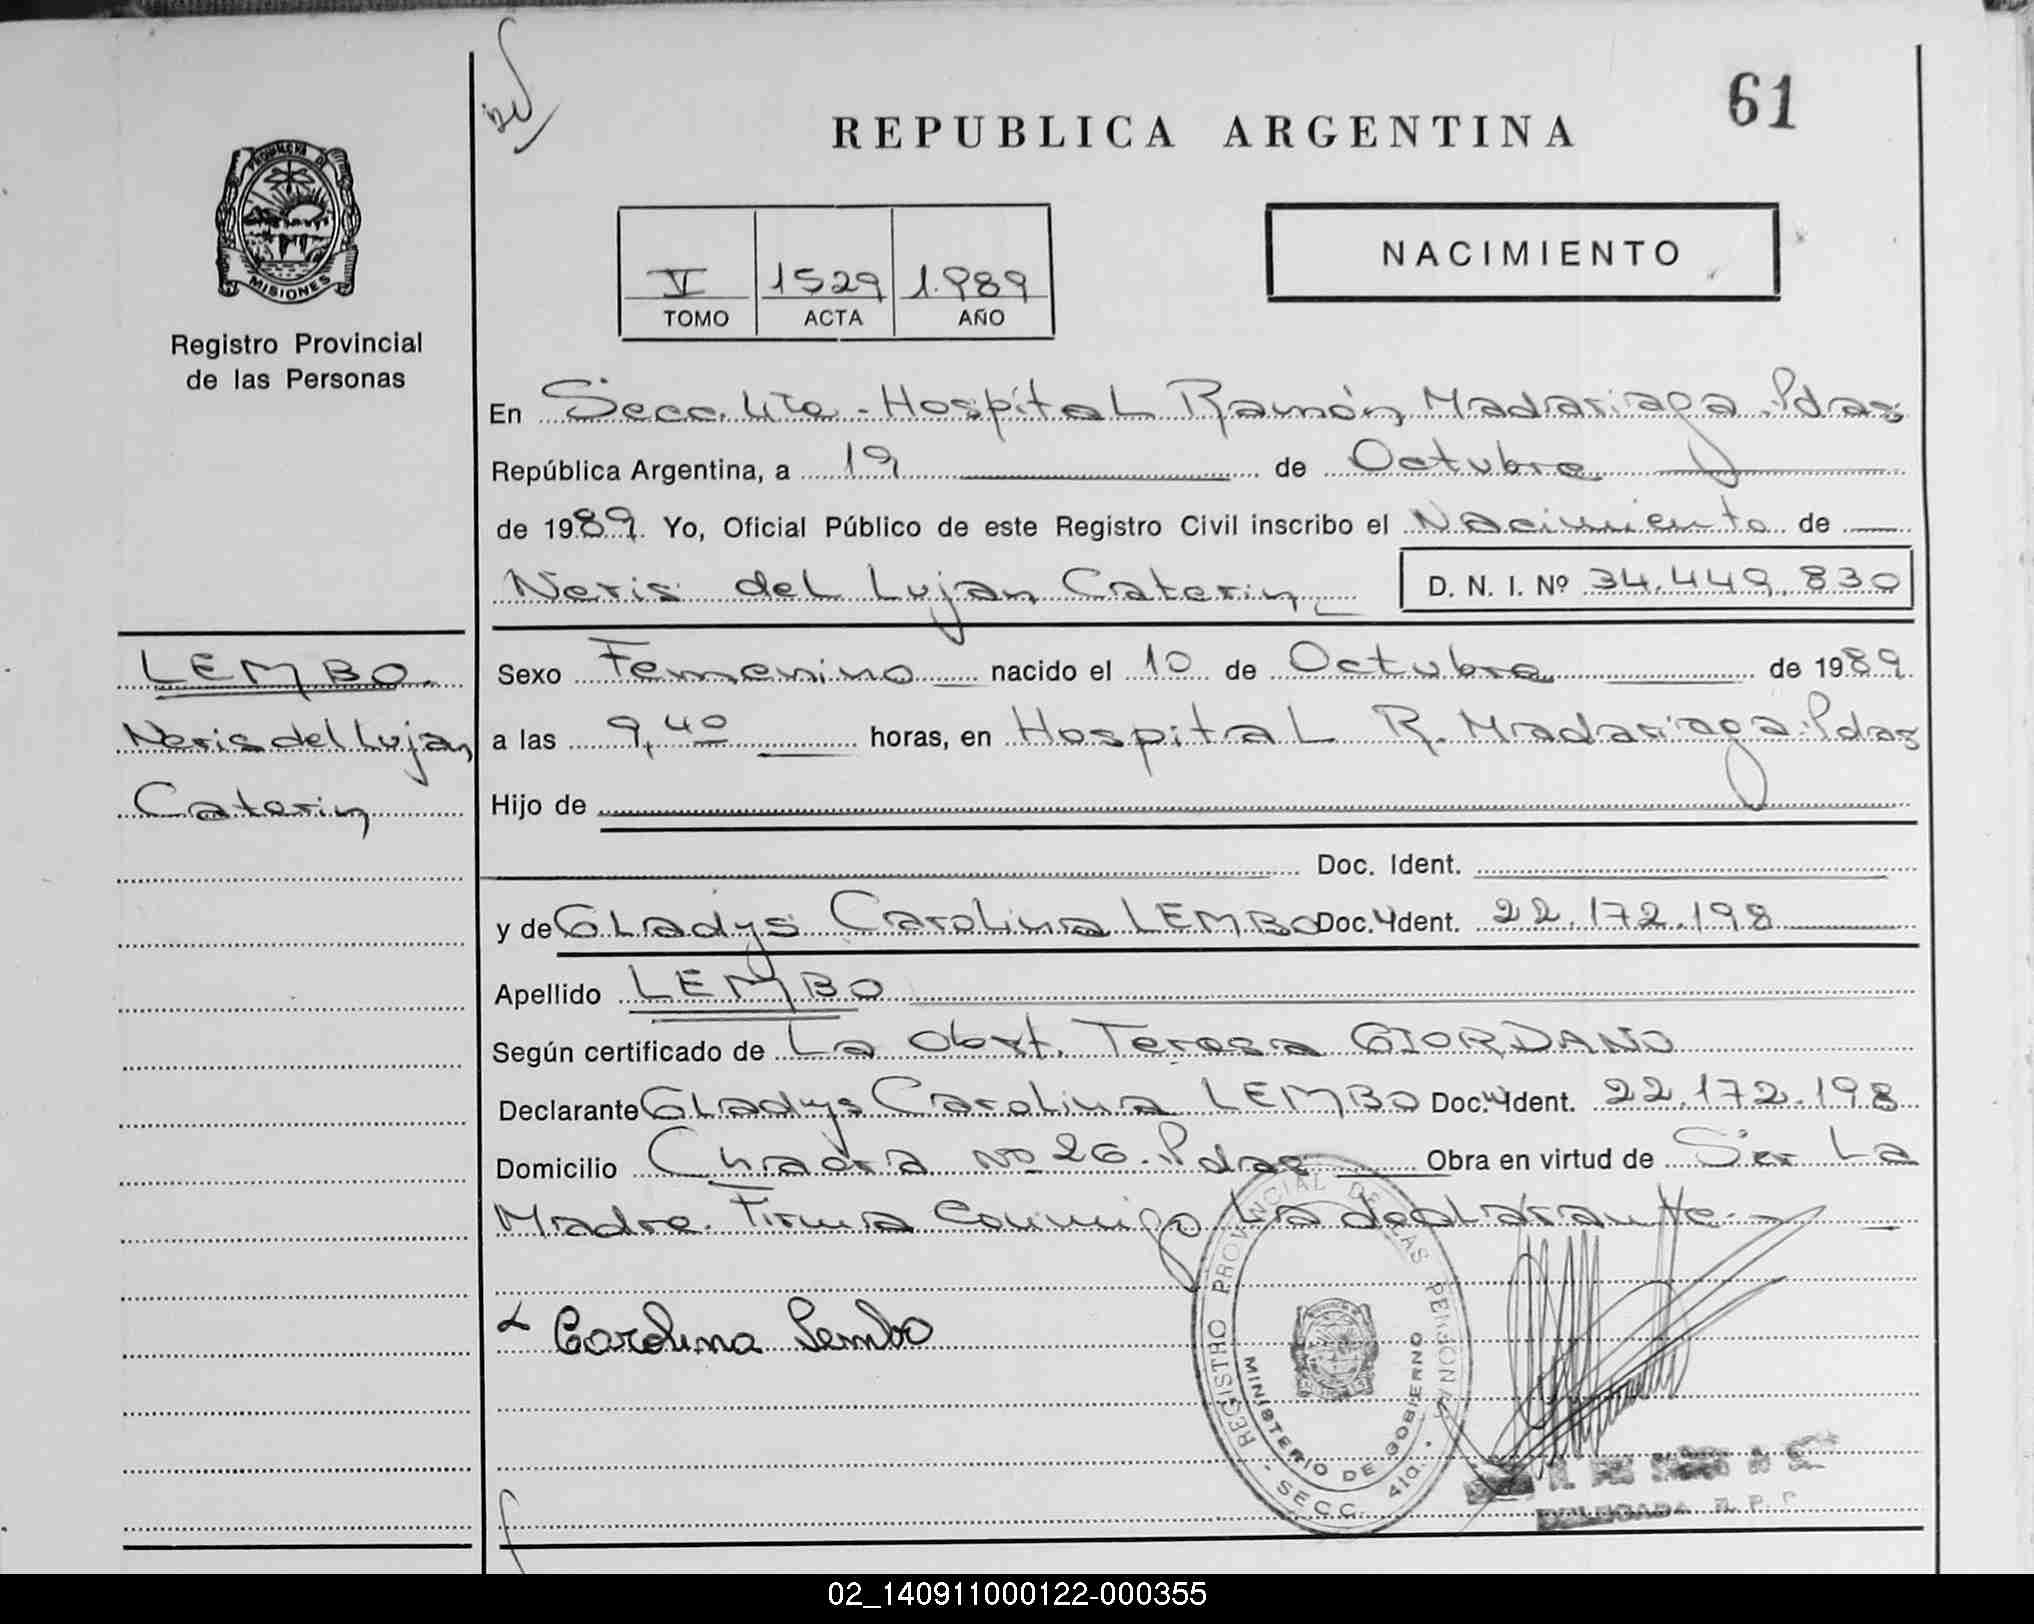 61
REPUBLICA ARGENTINA
PROVINCIA DE
MISIONES
Registro Provincial
de las Personas
V 1529 1.989
TOMO ACTA AÑO
NACIMIENTO
En Secc. 4ta - Hospital Ramón Madariaga. Pdas
República Argentina, a 19 de Octubre
de 1989. Yo, Oficial Público de este Registro Civil inscribo el Nacimiento de
Neris del Lujan Caterin
D. N. I. Nº 34.449.830
LEMBO.
Neris del Lujan
Caterin
Sexo Femenino nacido el 10 de Octubre de 1989.
a las 9,40 horas, en Hospital R. Madariaga. Pdas
Hijo de
Doc. Ident.
y de Gladys Carolina LEMBO Doc. Ident. 22.172.198
Apellido LEMBO
Según certificado de La Obst. Teresa GIORDANO
Declarante Gladys Carolina LEMBO Doc. Ident. 22.172.198
Domicilio Chacra Nº 26. Pdas Obra en virtud de Ser La
Madre. Firma Conmigo La declarante.
Carolina Lembo
REGISTRO PROVINCIAL DE LAS PERSONAS
MINISTERIO DE GOBIERNO
- SECC. 4ta. -
DELEGADA R. P. P.
02_140911000122-000355